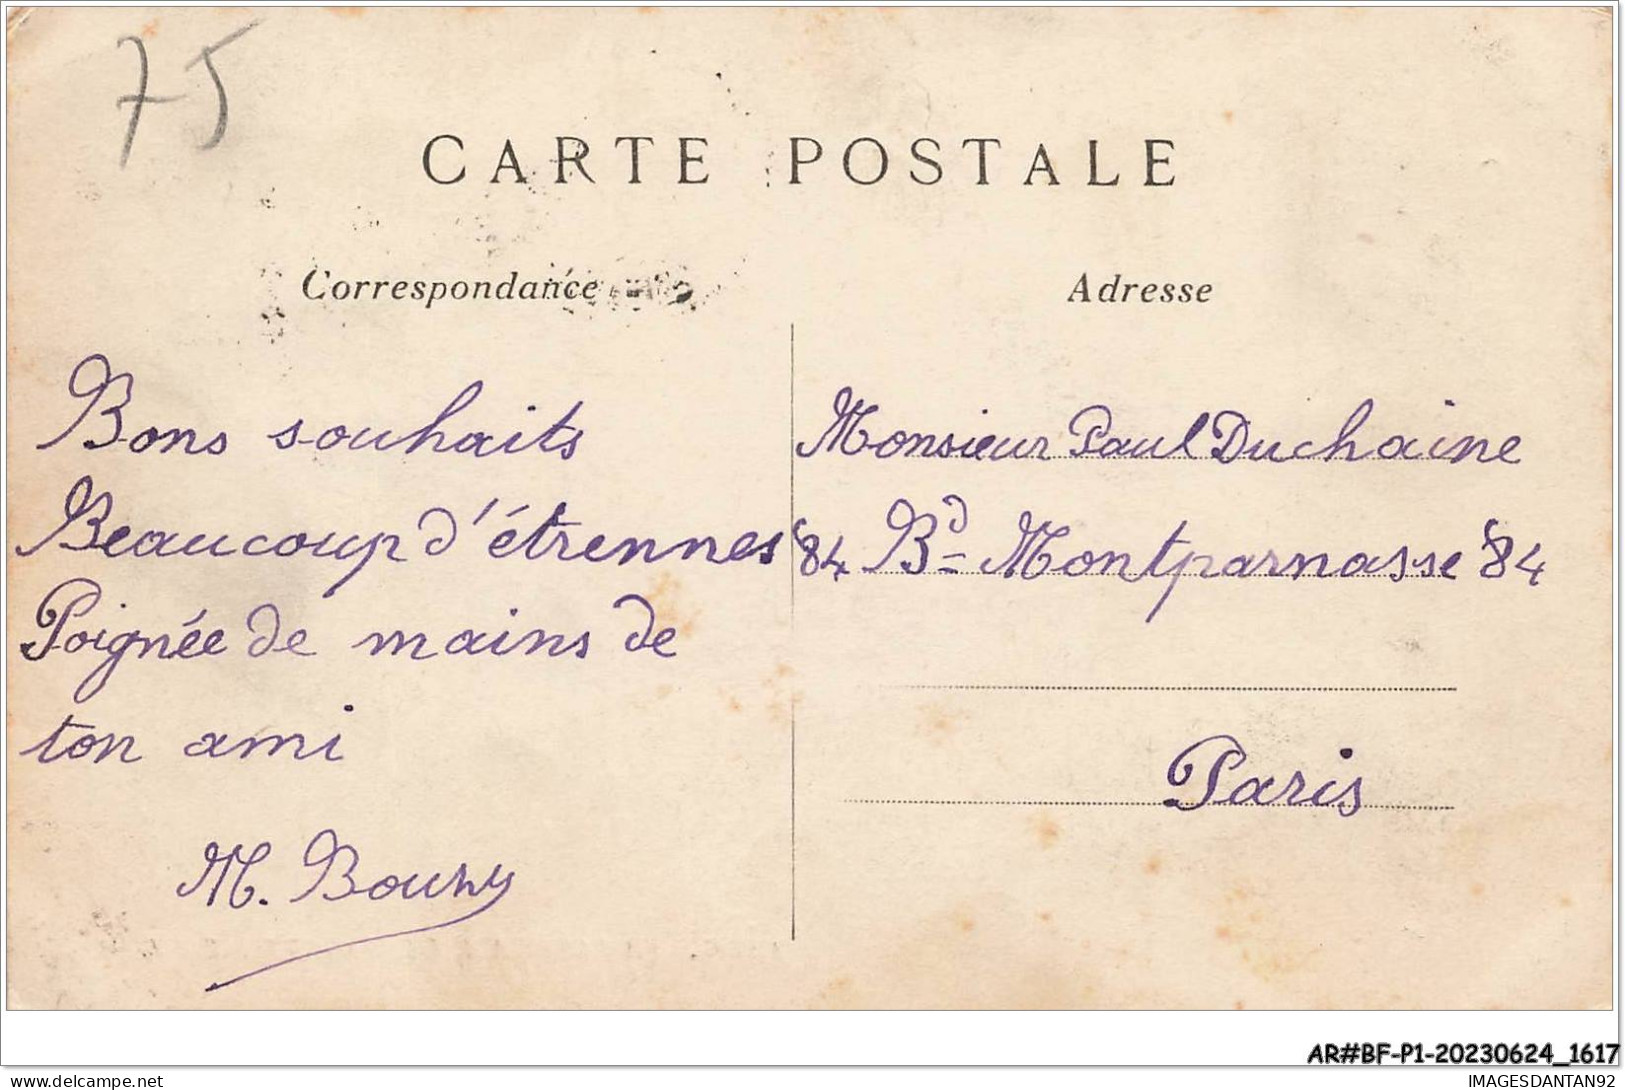 75
CARTE POSTALE
Correspondance
Adresse
Bons souhaits
Beaucoup d'étrennes
Poignée de mains de
ton ami
M. Bouhy
Monsieur Paul Duchaine
84 Bd Montparnasse 84
Paris
AR#BF-P1-20230624_1617
delcampe.net
IMAGESDANTAN92